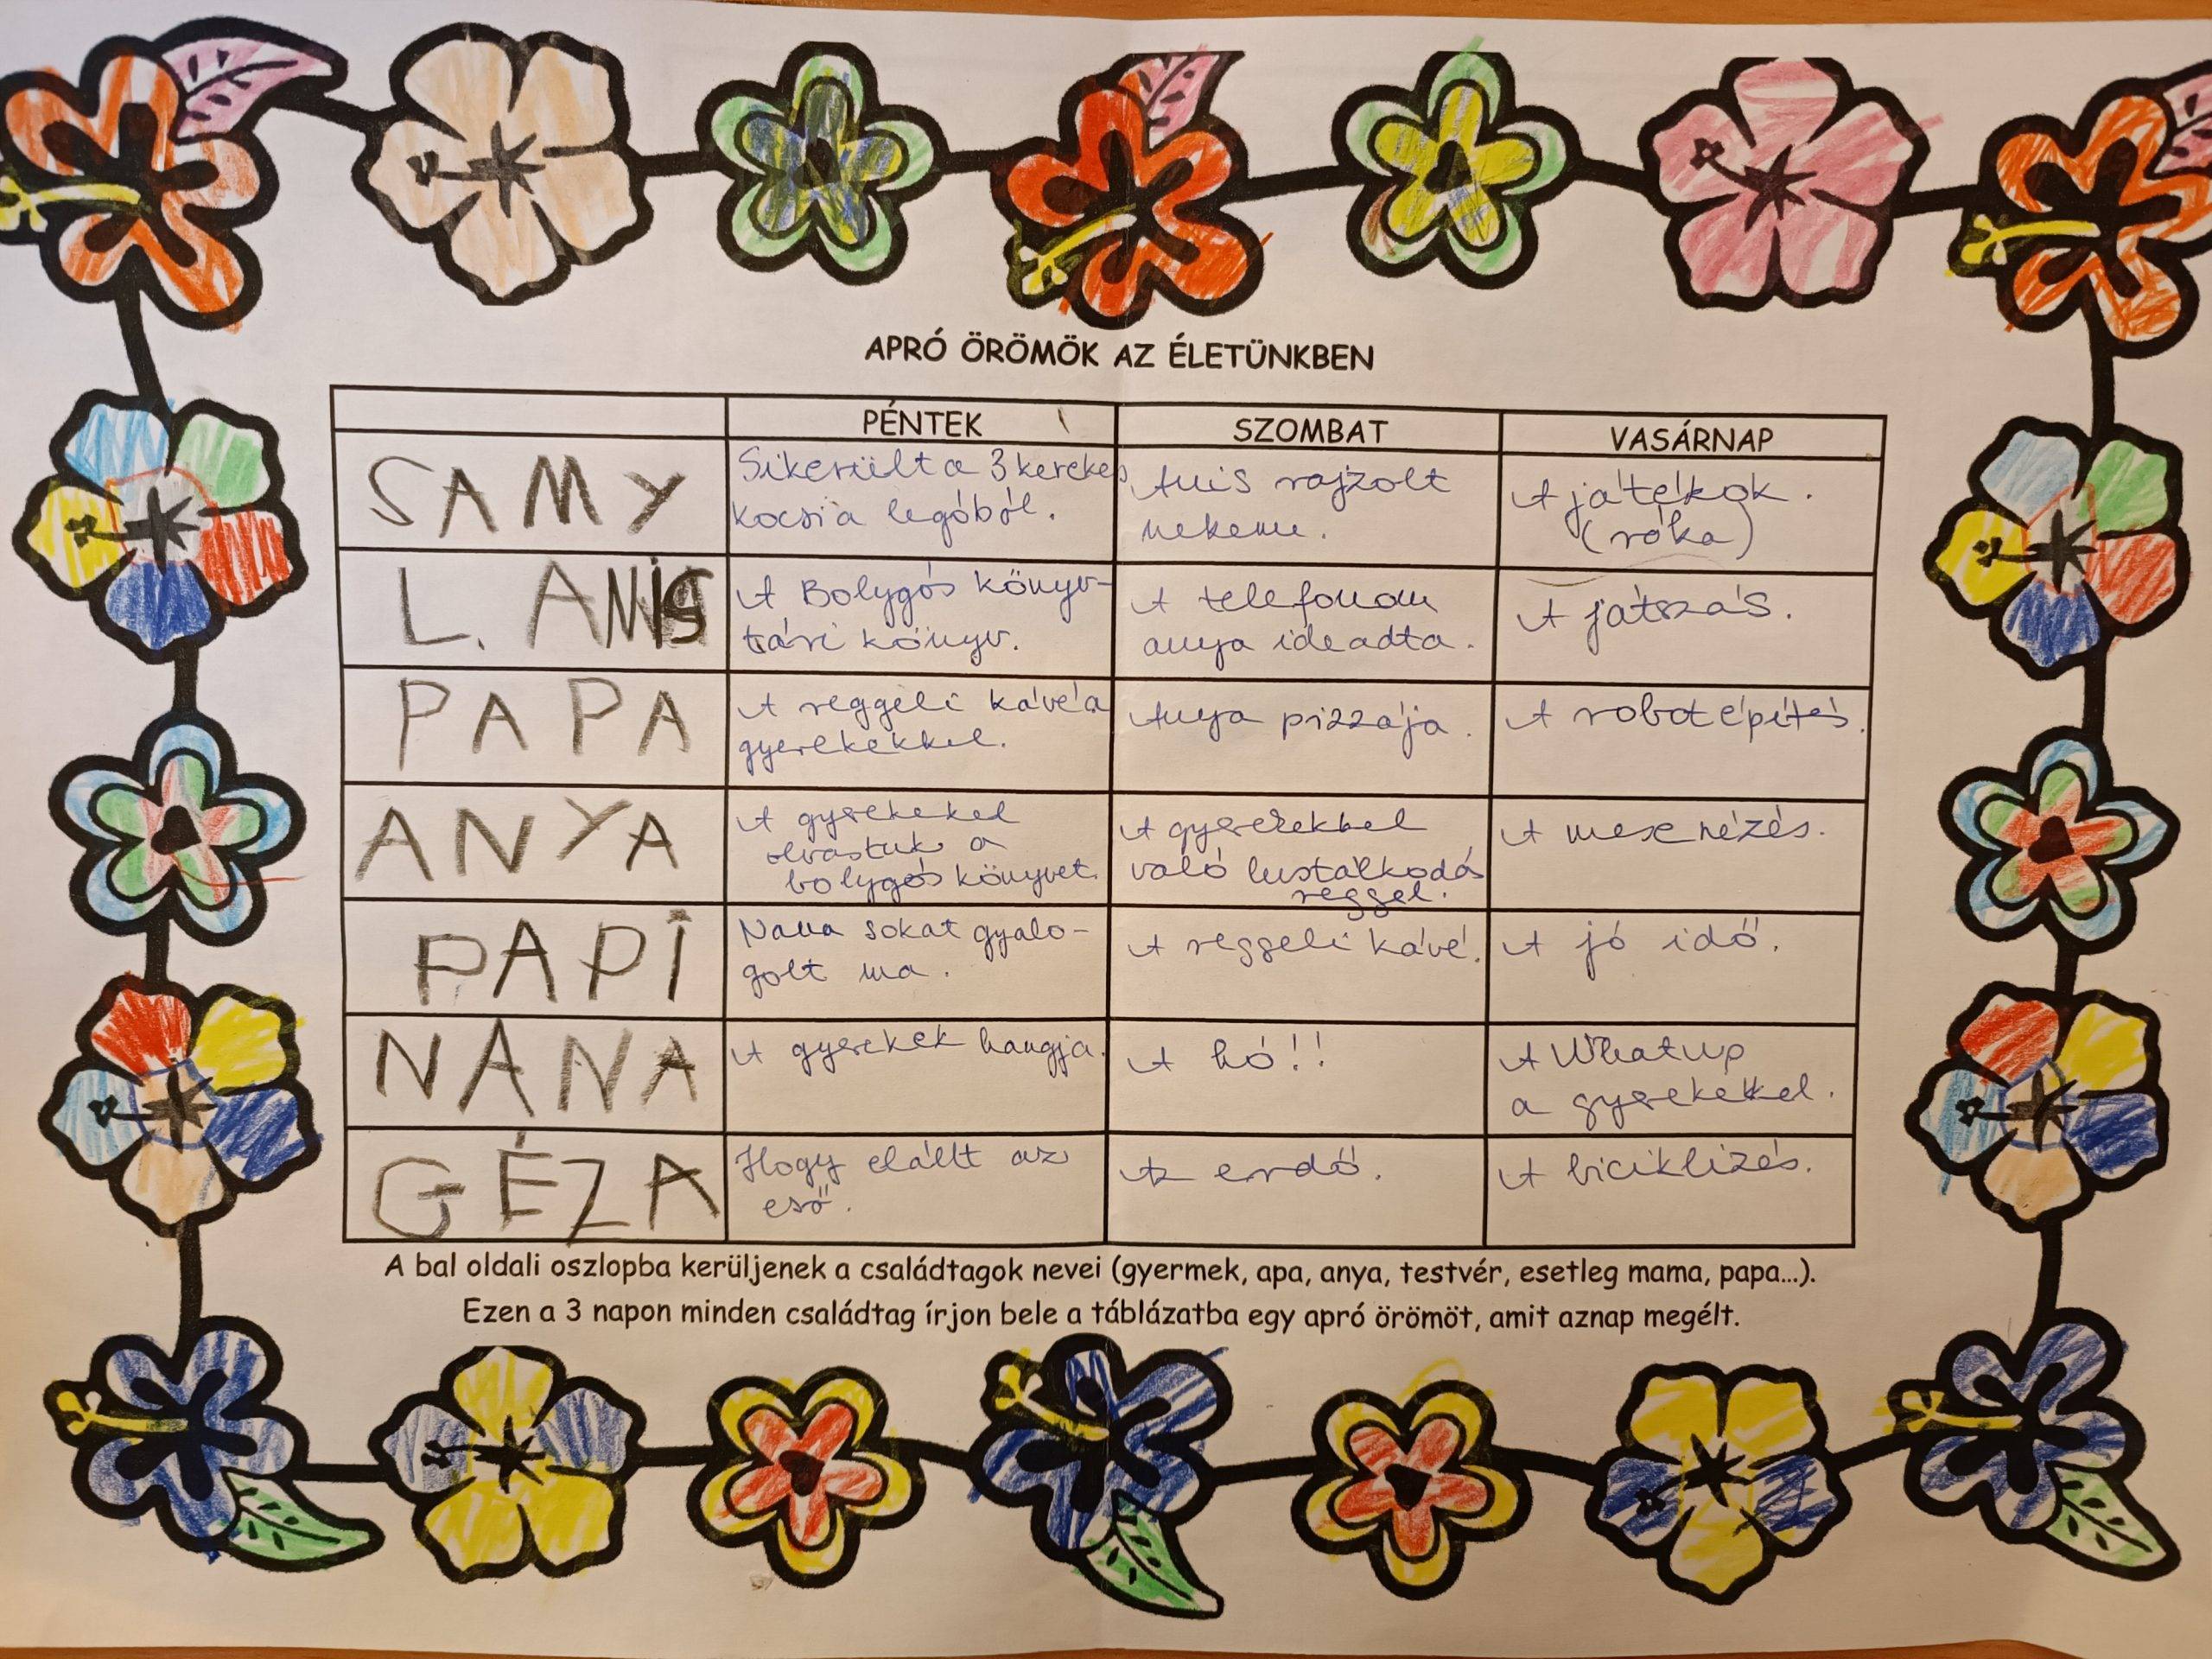 APRÓ ÖRÖMÖK AZ ÉLETÜNKBEN
PÉNTEK
SZOMBAT
VASÁRNAP
SAMY
Sikerült a 3 kerekes
kocsi a legóból.
Anis rajzolt
nekem.
A játékok.
(róka)
L. ANIS
A Bolygós könyv-
tári könyv.
A telefonom
anya ideadta.
A játszás.
PAPA
A reggeli kávé a
gyerekekkel.
Anya pizzája.
A robotépítés.
ANYA
A gyerekekel
olvastuk a
bolygós könyvet.
A gyerekekkel
való lustálkodás
reggel.
A mese nézés.
PAPI
Nana sokat gyalo-
golt ma.
A reggeli kávé.
A jó idő.
NANA
A gyerekek hangja.
A hó!!
A Whatup
a gyerekekkel.
GÉZA
Hogy elállt az
eső.
Az erdő.
A biciklizés.
A bal oldali oszlopba kerüljenek a családtagok nevei (gyermek, apa, anya, testvér, esetleg mama, papa...).
Ezen a 3 napon minden családtag írjon bele a táblázatba egy apró örömöt, amit aznap megélt.